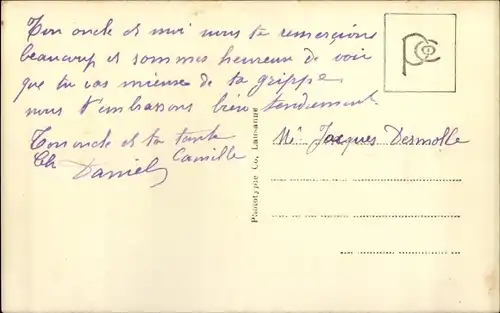 Ton oncle et moi nous te remercions
beaucoup et sommes heureux de voir
que tu vas mieux de ta grippe
nous t'embrassons bien tendrement
Ton oncle et ta tante
Ch Daniel Camille
Phototypie Co, Lausanne
PCo
Mr Jacques Desmolle